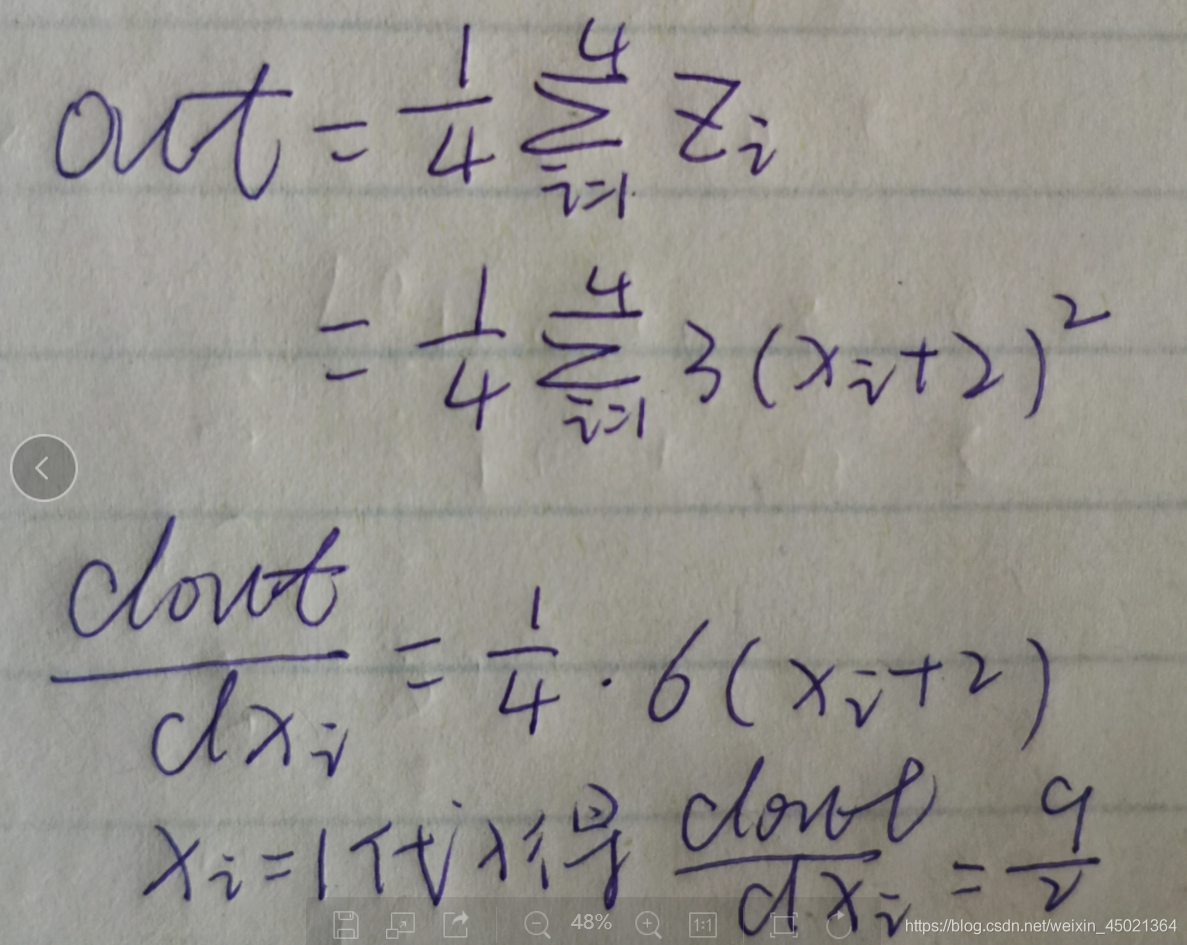 out = 1/4 ∑_{i=1}^{4} z_i
= 1/4 ∑_{i=1}^{4} 3(x_i+2)^2
dout/dx_i = 1/4 · 6(x_i+2)
x_i=1代入得 dout/dx_i = 9/2
48%
1:1
https://blog.csdn.net/weixin_45021364